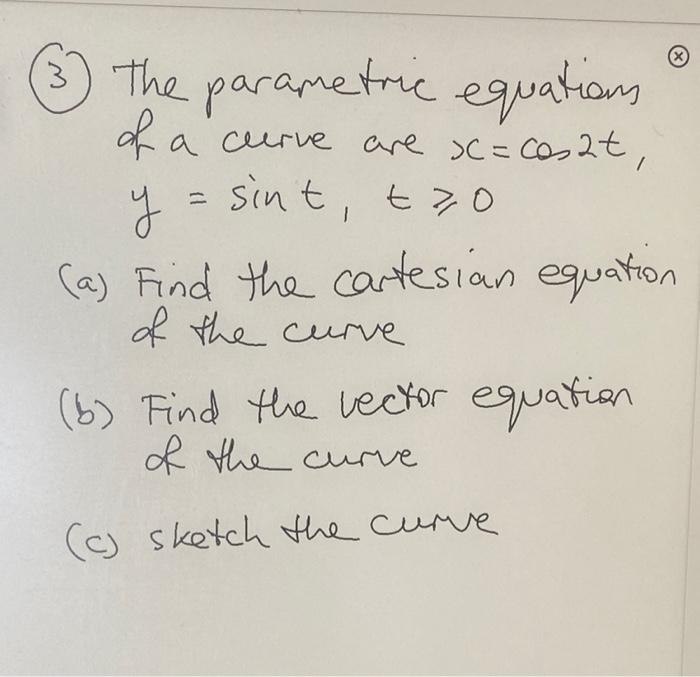 ③ The parametric equations
of a curve are x = cos 2t,
y = sin t, t ⩾ 0
(a) Find the cartesian equation
of the curve
(b) Find the vector equation
of the curve
(c) sketch the curve